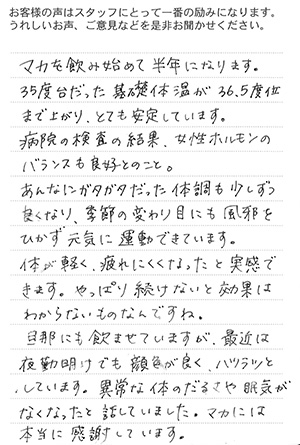 お客様の声はスタッフにとって一番の励みになります。
うれしいお声、ご意見などを是非お聞かせください。
マカを飲み始めて半年になります。
35度台だった基礎体温が36.5度位
まで上がり、とても安定しています。
病院の検査の結果、女性ホルモンの
バランスも良好とのこと。
あんなにガタガタだった体調も少しずつ
良くなり、季節の変わり目にも風邪を
ひかず元気に運動できています。
体が軽く、疲れにくくなったと実感で
きます。やっぱり続けないと効果は
わからないものなんですね。
旦那にも飲ませていますが、最近は
夜勤明けでも顔色が良く、ハツラツと
しています。異常な体のだるさや眠気が
なくなったと話していました。マカには
本当に感謝しています。